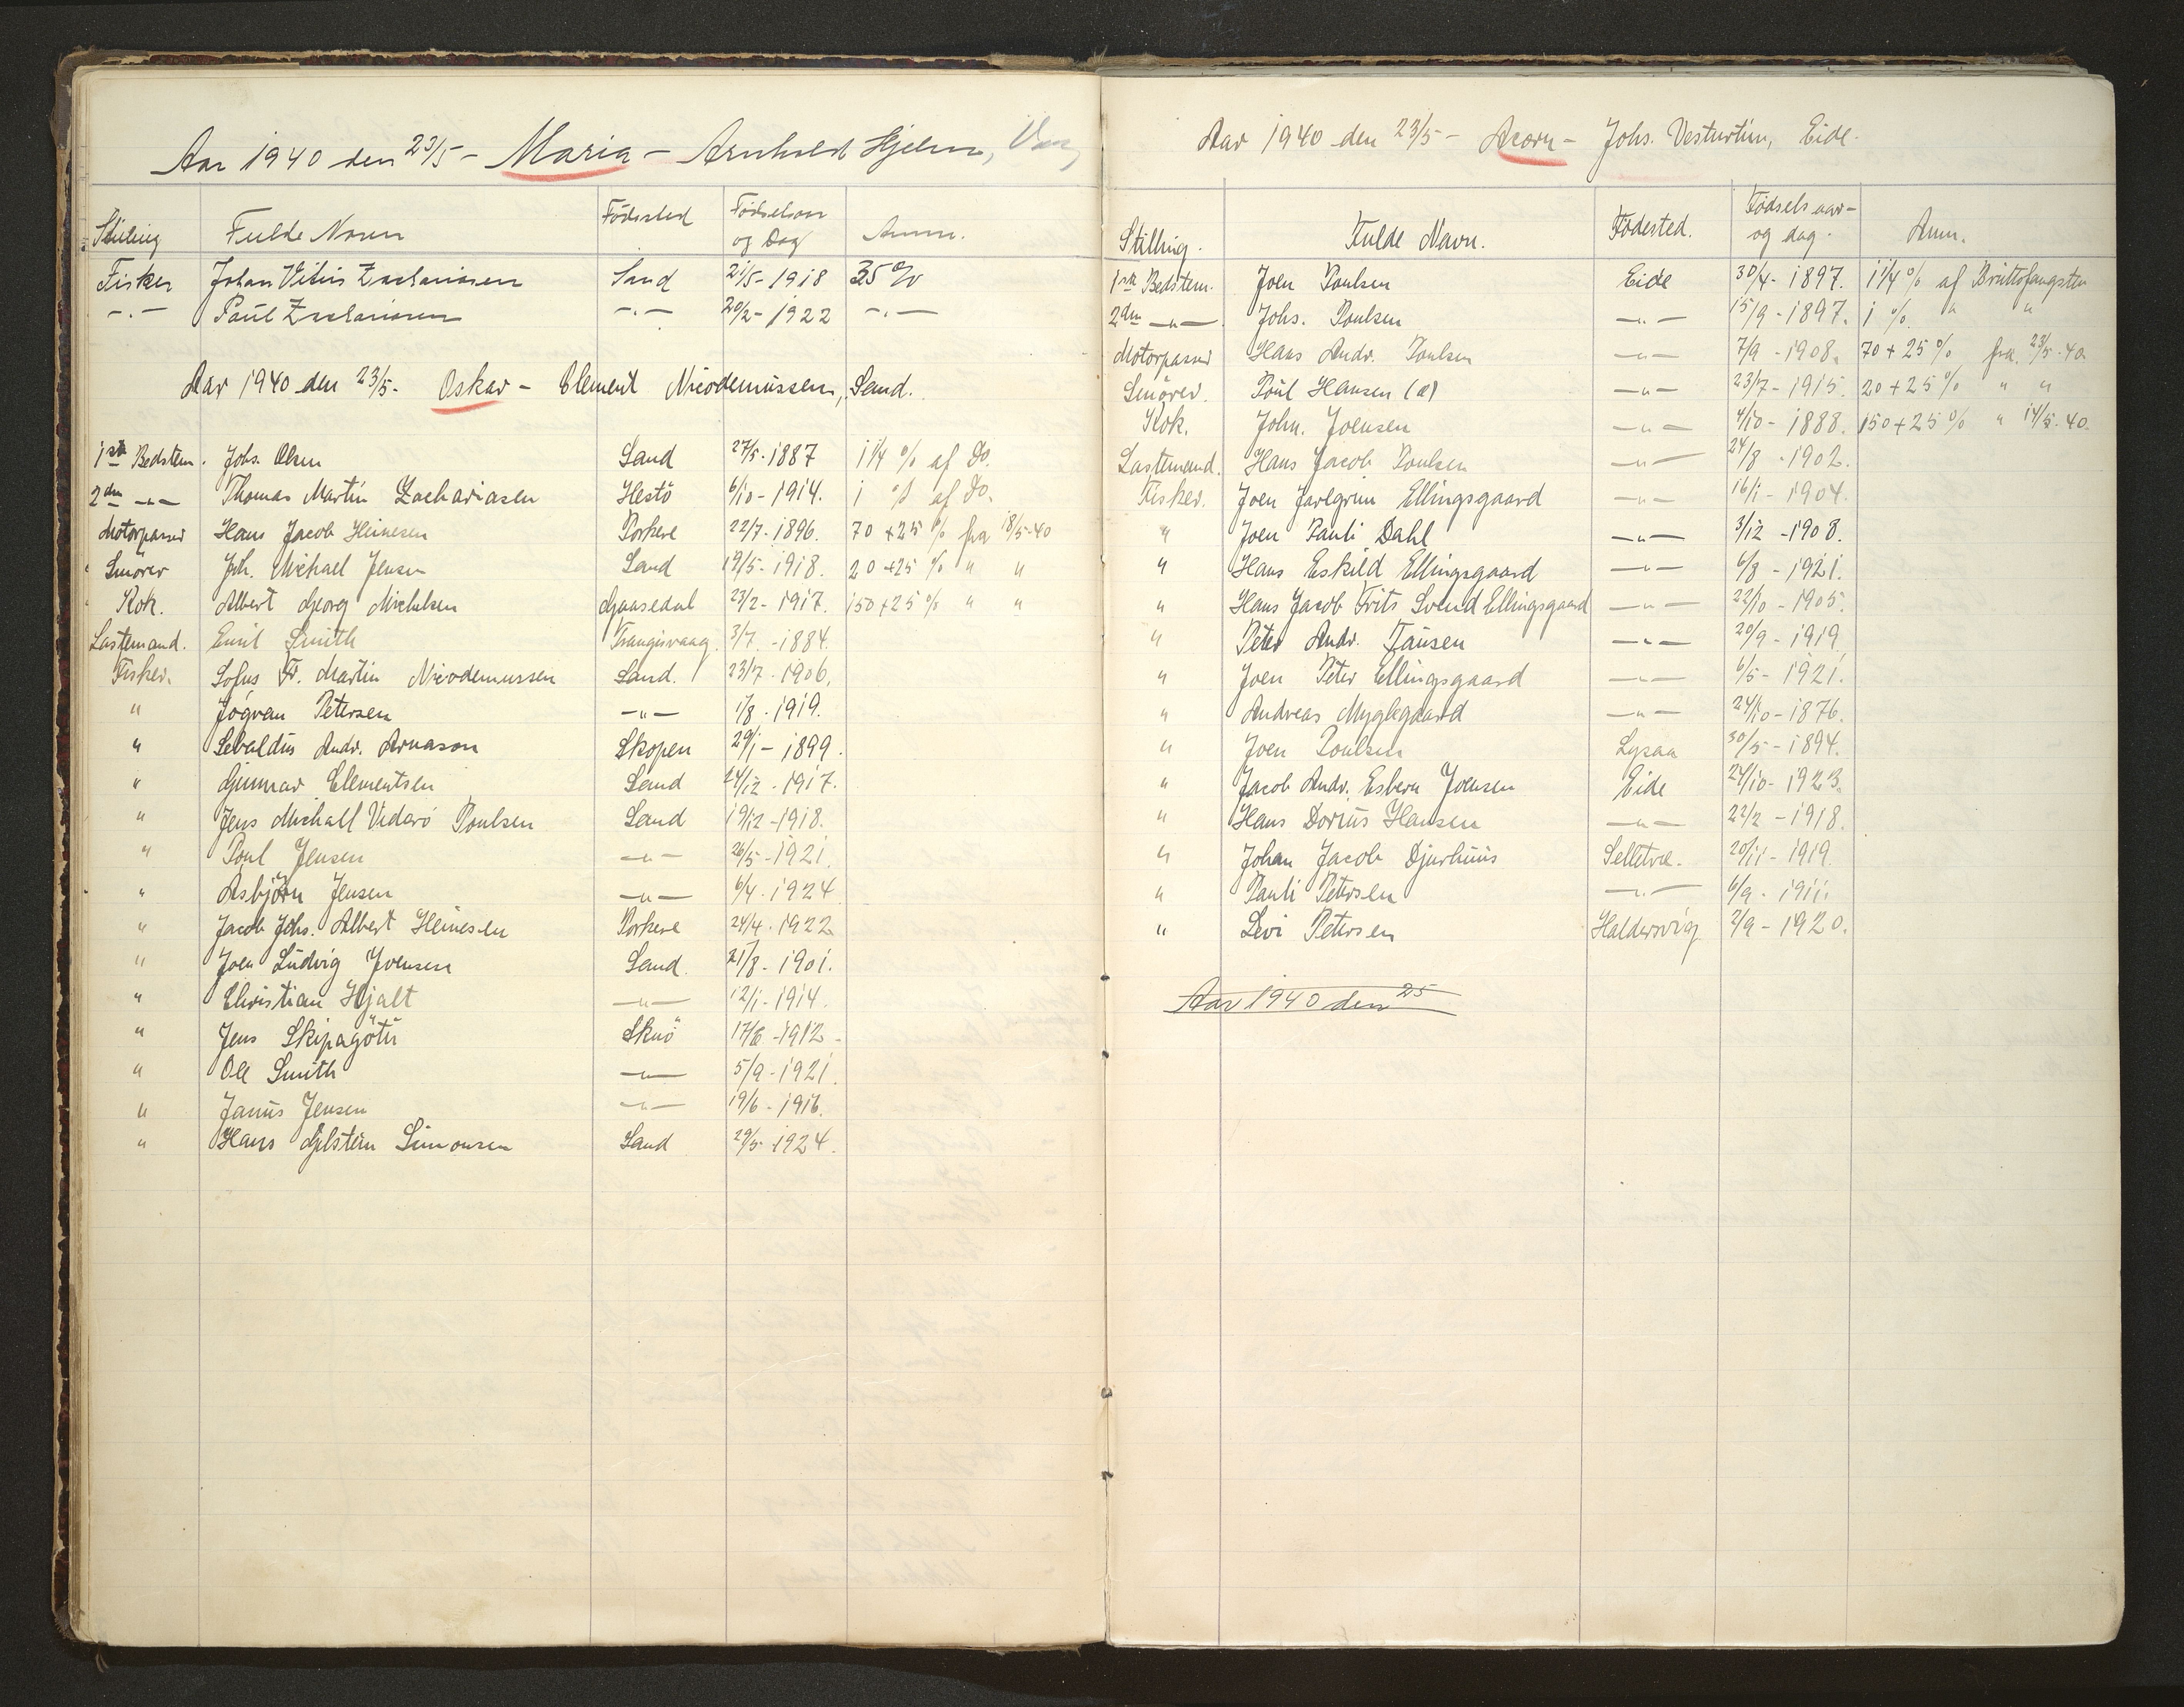 Aar 1940 den 23/5 - Maria - Arnhold Hjelm,
Stilling Fulde Navn Födested Födselsaar og Dag Anm.
Fisker Johan Vitus Zachariasen Sand 21/5-1918 35 %
-"- Poul Zachariasen -"- 20/2-1922 -"-
Aar 1940 den 23/5- Oskar - Clement Nicodemussen, Sand.
1ste Bedstem. Johs. Olsen Sand 27/5-1887 1 1/4 % af Do.
2den -"- Thomas Martin Zachariasen Hestö 6/10-1914. 1 % af Do.
Motorpasser Hans Jacob Heinesen Porkere 22/7-1896. 70 + 25 % fra 18/5-40
Smörer Joh. Michael Jensen Sand 19/5-1918. 20+25 % " "
Kok. Albert Georg Michelsen Gaasedal 23/2-1917. 150+25 % " "
Lastemand. Emil Smith Trangisvaag. 3/7-1884.
Fisker. Sofus Fr. Martin Nicodemussen Sand. 23/7-1906.
" Jógvan Petersen -"- 1/8-1919.
" Sebaldus Andr. Arnason Skopen 29/1-1899.
" Gunnar Clementsen Sand 24/12-1917.
" Jens Michall Vidarö Poulsen Sand 19/12-1918.
" Poul Jensen -"- 26/5-1921.
" Asbjörn Jensen -"- 6/4-1924
" Jacob Johs. Albert Heinesen Porkere 24/4-1922
" Joen Ludvig Joensen Sand. 21/8-1901.
" Christian Hjalt -"- 12/1-1914.
" Jens Skipagötu Skuö 17/6-1912-
" Ole Smith -"- 5/9-1921.
" Janus Jensen -"- 19/6-1916.
" Hans Gilstein Simonsen Sand 29/5-1924.
Aar 1940 den 23/5 - Acorn - Johs. Vesturtún, Eide.
Stilling. Fulde Navn. Födested. Födselsaar- og dag. Anm.
1ste Bedstem. Joen Poulsen Eide 30/4-1897. 1 1/4 % af Bruttofangsten
2den -"- Johs. Poulsen -"- 15/9-1897. 1 % " "
Motorpasser Hans Andr. Poulsen -"- 7/9-1908. 70 + 25 % fra 23/5-40.
Smörer. Poul Hansen (a) -"- 23/7-1915. 20 + 25 % " "
Kok. John. Joensen -"- 4/10-1888. 150 + 25 % " 14/5-40.
Lastemand. Hans Jacob Poulsen -"- 24/8-1902.
Fisker. Joen Jarlgrim Ellingsgaard -"- 16/1-1904.
" Joen Pauli Dahl -"- 3/12-1908.
" Hans Eskild Ellingsgaard -"- 6/8-1921.
" Hans Jacob Frits Svend Ellingsgaard -"- 22/10-1905.
" Peter Andr. Tausen -"- 20/9-1919.
" Joen Peter Ellingsgaard -"- 6/5-1921.
" Andreas Myglegaard -"- 24/10-1876.
" Joen Poulsen Lyraa 30/5-1894.
" Jacob Andr. Esbern Joensen Eide 24/10-1923.
" Hans Dorius Hansen -"- 22/2-1918.
" Johan Jacob Djurhuus Selletræ. 20/11-1919.
" Pauli Petersen -"- 6/9-1911.
" Levi Petersen Haldersvig 2/9-1920.
Aar 1940 den 25